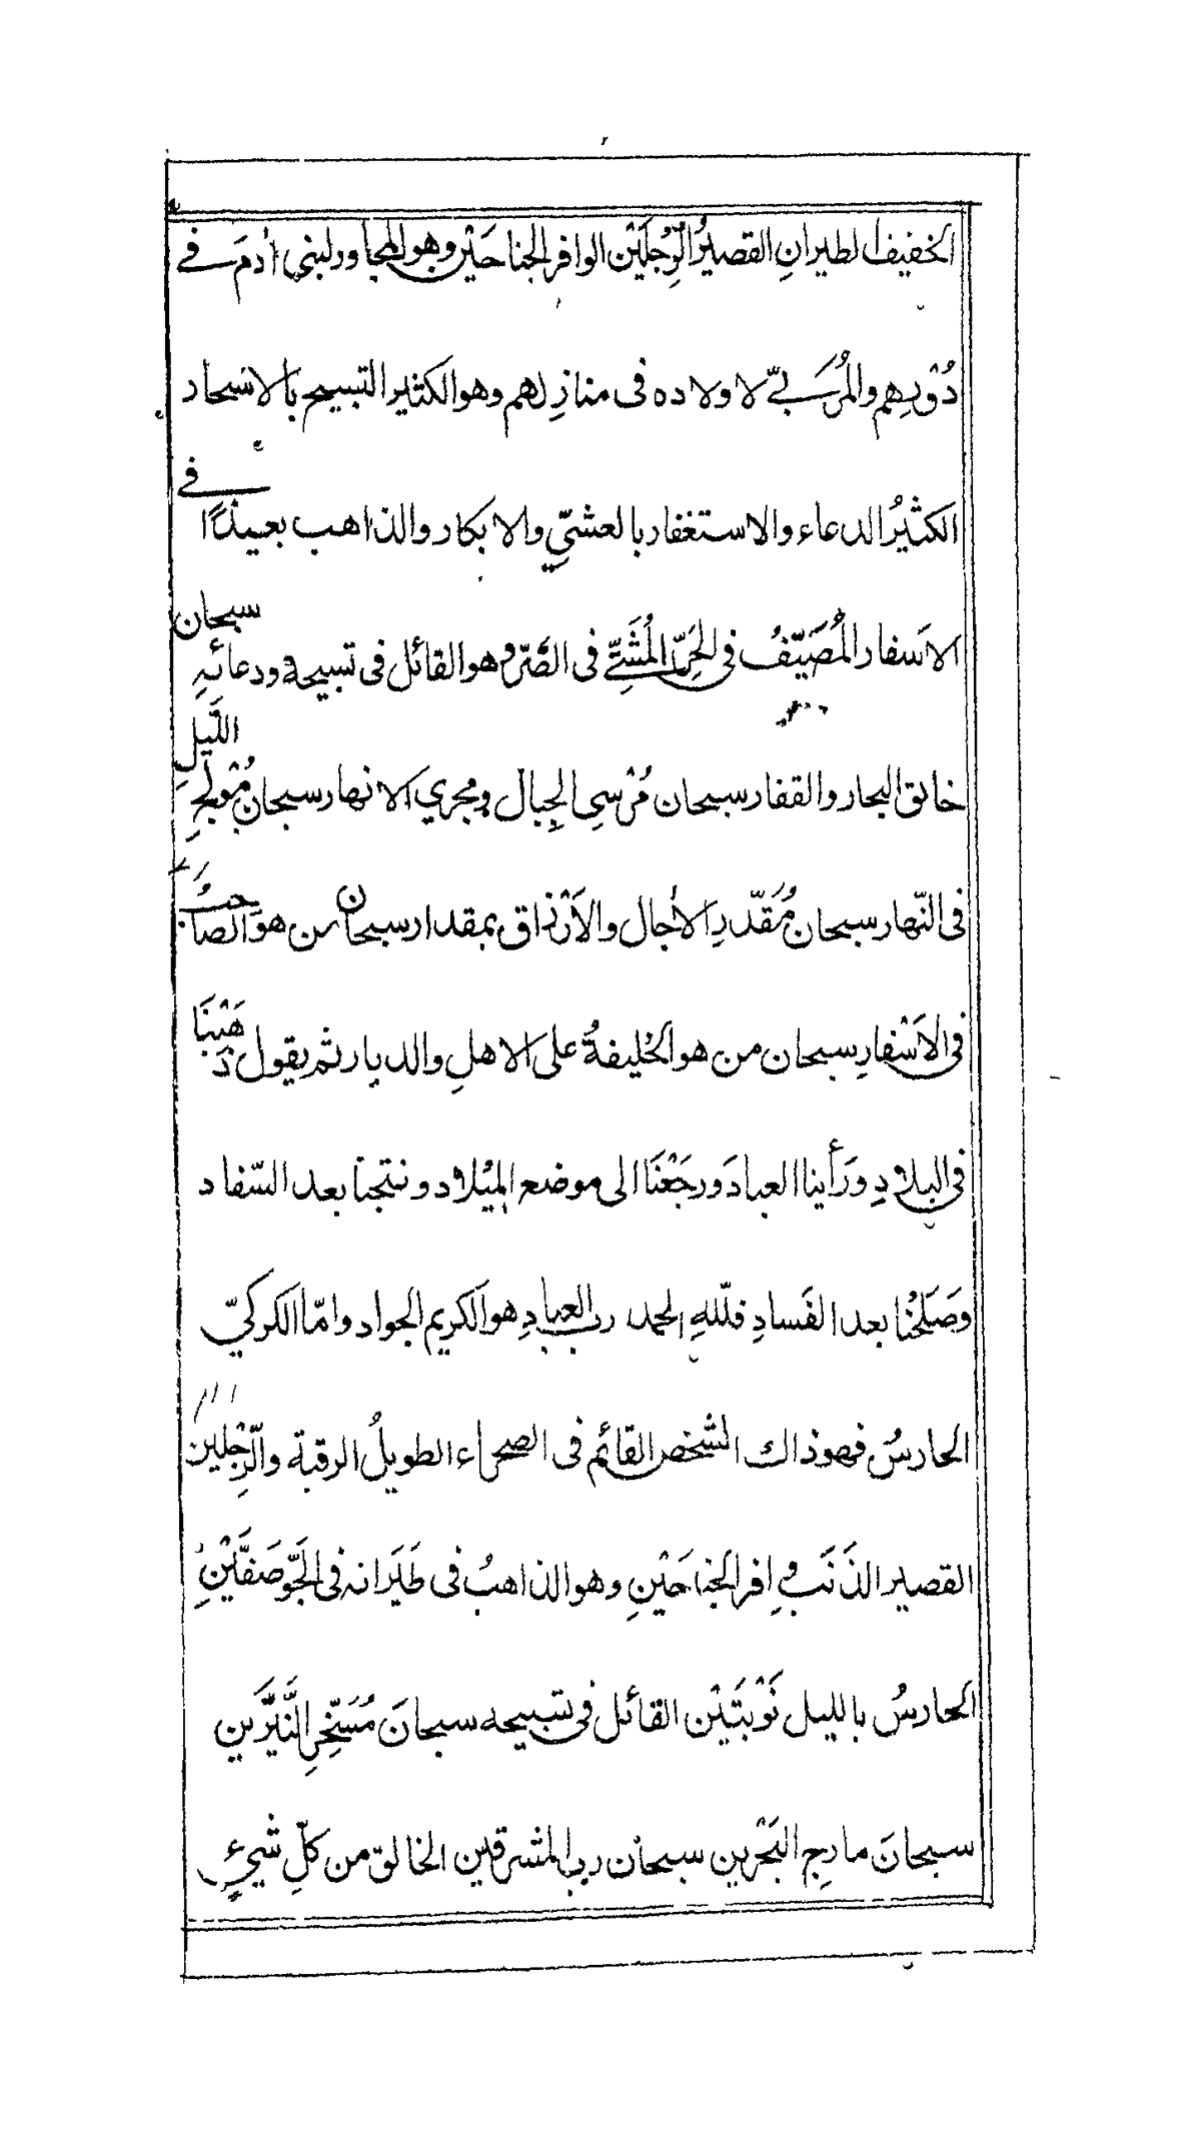 الخفيف الطيرانِ القصيرُ الرِّجْلَيْن الوافر الجناحَيْن وهو المجاور لبنى اٰدمَ فى
دُوْرِهِم والمُرَبِّىّ لاولاده فى منازِلهم وهو الكثير التسبيح بالاسحار
الكثيرُ الدعاء والاستغفار بالعشىِّ والابكار والذاهب بعيدًا فى
الاَسْفار المُصَيِّفُ فى الحَرِّ المُشَتِّى فى الصَّرّ وهو القائل فى تسبيحه ودعائهِ سبحان
خالق البحار والقفار سبحان مُرْسِى الجِبال ومجرى الانهار سبحان مُوْلِجِ اللَّيلِ
فى النّهار سبحان مُقَدّرِ الاٰجال والاَرْزاق بمقدار سبحان من هو الصاحبُ
فى الاَسْفارِ سبحان من هو الخليفةُ على الاهلِ والديار ثم يقول ذَهَبْنَا
فى البلادِ ورَأينا العبادَ ورجَعْنَا الى موضع المِيْلاد ونتجنا بعد السّفاد
وصَلَحْنا بعد الفَسادِ فلّلهِ الحمد ربّ العبادِ هو الكريم الجواد وامّا الكركىّ
الحارسُ فهو ذالك الشخص القائم فى الصحراء الطويلُ الرقبة والرِّجْلين
القصير الذَنَب وافر الجناحَيْنِ وهو الذاهبُ فى طَيَرانه فى الجَوّ صَفَّيْنِ
الحارسُ بالليل نَوْبَتَيْن القائل فى تسبيحه سبحانَ مُسَخّرِ النَّيِّرَين
سبحانَ مارِج البَحْرين سبحان رب المشرقين الخالق من كلِّ شىءٍ